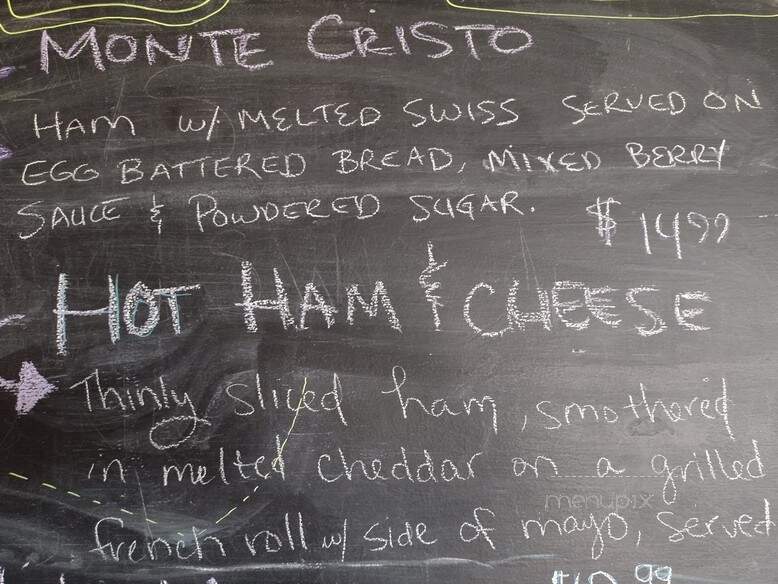 MONTE CRISTO
HAM W/ MELTED SWISS SERVED ON
EGG BATTERED BREAD, MIXED BERRY
SAUCE & POWDERED SUGAR. $1499
HOT HAM & CHEESE
Thinly sliced ham, smothered
in melted cheddar on a grilled
menupix
french roll w/ side of mayo, served